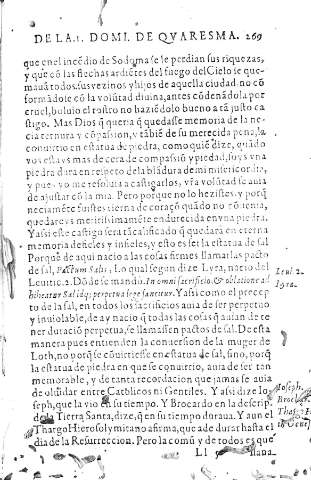 DE LA.1. DOMI. DE QVARESMA. 269
que en el incẽdio de Sodoma se le perdian sus riquezas,
y que cõ las flechas ardiẽtes del fuego del Cielo se que-
mauã todos, sus vezinos y hijos de aquella ciudad: no cõ
formãdose cõ la volũtad diuina, antes cõdenãdola por
cruel, boluio el rostro no haziẽdolo bueno a tã justo ca
stigo. Mas Dios q̃ queria q̃ quedasse memoria de la ne-
cia ternura y cõpassion, y tãbiẽ de su merecida pena, la
conuirtio en estatua de piedra, como quiẽ dize, quãdo
vos estays mas de cera de compassiõ y piedad, soys vna
piedra dura en respeto de la blãdura de mi misericordia,
y pues yo me resoluia a castigarlos, vr̃a volũtad se auia
de ajustar cõ la mia. Pero porque no lo hezistes, y porq̃
neciamẽte fuistes tierna de coraçõ quãdo no cõuenia,
quedareys meritissimamẽte endurecida en vna piedra.
Y assi este castigo serà tã calificado q̃ quedarà en eterna
memoria de fieles y infieles, y esto es ser la estatua de sal
Porquè de aqui nacio a las cosas firmes llamarlas pacto
de sal, Pactum Salis, Lo qual segun dize Lyra, nacio del
Leuitic. 2. Dõde se mando. In omni sacrificio, & oblatione ad
hibeatur Sal idq; perpetua lege sancitur. Y assi como el precep
to de la sal, en todos los sacrificios auia de ser perpetuo
y inuiolable, de ay nacio q̃ todas las cosas q̃ auian de te
ner duraciõ perpetua, se llamassen pactos de sal. De esta
manera pues entienden la conuersion de la muger de
Loth, no porq̃ se cõuirtiesse en estatua de sal, sino, porq̃
la estatua de piedra en que se conuirtio, auia de ser tan
memorable, y de tanta recordacion que jamas se auia
de oluidar entre Catholicos ni Gentiles. Y assi dize Io
seph, que la vio en su tiempo. Y Brocardo en la descrip.
de la Tierra Santa, dize, q̃ en su tiempo duraua. Y aun el
Thargo Hierosolymitano afirma, que ade durar hasta el
dia de la Resurreccion. Pero la comũ y de todos es que
Leui 2.
Lyra.
Ioseph.
Brocar
Thar
Ll